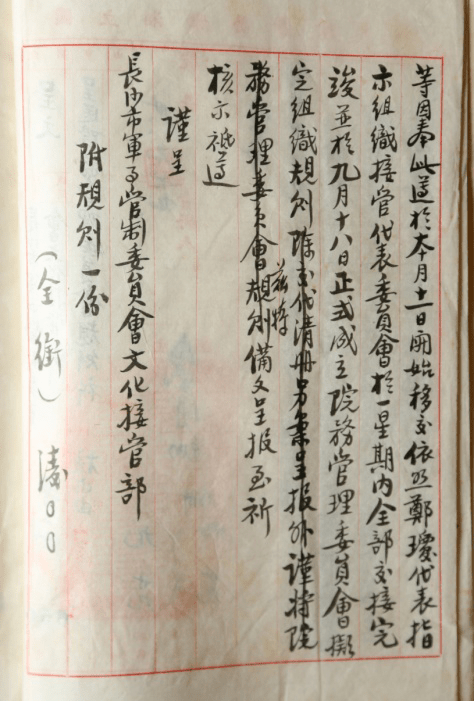 等因奉此遵於本月十一日開始移交依照鄭瓊代表指
示組織接管代表委員會於一星期內全部交接完
竣並於九月十八日正式成立院務管理委員會擬
定組織規則除交代清册另案呈报外謹將院
茲將
務管理委員會規則備文呈报至祈
核示祗遵
謹呈
長沙市軍事管制委員會文化接管部
附規則一份
（全銜）